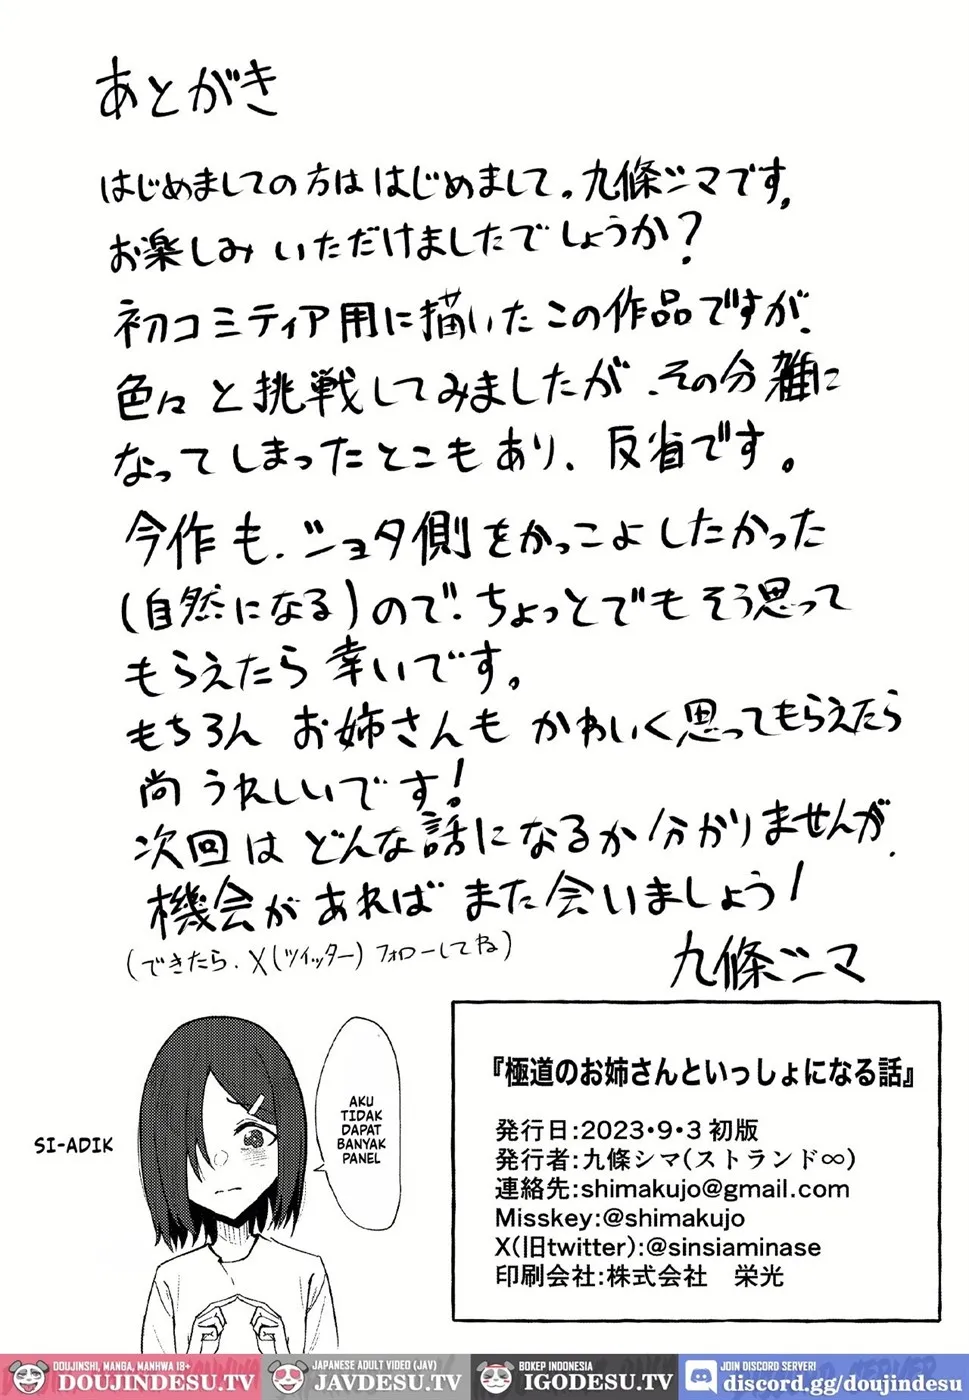 あとがき
はじめましての方ははじめまして。九條シマです。
お楽しみいただけましたでしょうか？
初コミティア用に描いたこの作品ですが、
色々と挑戦してみましたが、その分雑に
なってしまったとこもあり、反省です。
今作も、ショタ側をかっこよしたかった
(自然になる)ので、ちょっとでもそう思って
もらえたら幸いです。
もちろんお姉さんもかわいく思ってもらえたら
尚うれしいです！
次回はどんな話になるか分かりませんが、
機会があればまた会いましょう！
(できたら、X(ツイッター)フォローしてね)
九條シマ
SI-ADIK
AKU
TIDAK
DAPAT
BANYAK
PANEL
『極道のお姉さんといっしょになる話』
発行日:2023・9・3 初版
発行者:九條シマ(ストランド∞)
連絡先:shimakujo@gmail.com
Misskey:@shimakujo
X(旧twitter):@sinsiaminase
印刷会社:株式会社　栄光
DOUJINSHI, MANGA, MANHWA 18+
DOUJINDESU.TV
JAPANESE ADULT VIDEO (JAV)
JAVDESU.TV
BOKEP INDONESIA
IGODESU.TV
JOIN DISCORD SERVER!
discord.gg/doujindesu